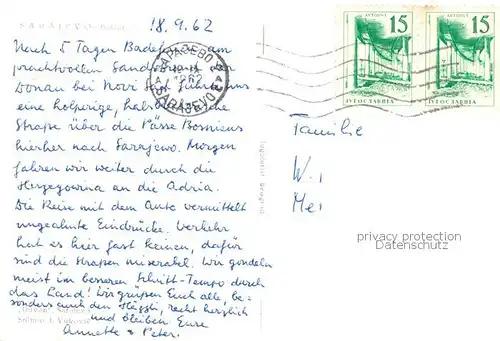 SARAJEVO
18.9.62
Nach 5 Tagen Baden am
prachtvollen Sandstrand der
Donau bei Novi Sad führte uns
eine holperige, halsbrecherische
Straße über die Pässe Bosniens
hierher nach Sarajewo. Morgen
fahren wir weiter durch die
Herzegowina an die Adria.
Die Reise mit dem Auto vermittelt
ungeahnte Eindrücke. Verkehr
hat es hier fast keinen, dafür
sind die Straßen miserabel. Wir gondeln
meist im besseren Schritt-Tempo durch
das Land! Wir grüßen Euch alle, be-
sonders auch den Heggli, recht herzlich
und bleiben Eure
Annette & Peter.
САРАЈЕВО 2
SARAJEVO 2
15
JUGOSLAVIJA
15
JUGOSLAVIJA
Familie
W.
Mei
privacy protection
Datenschutz